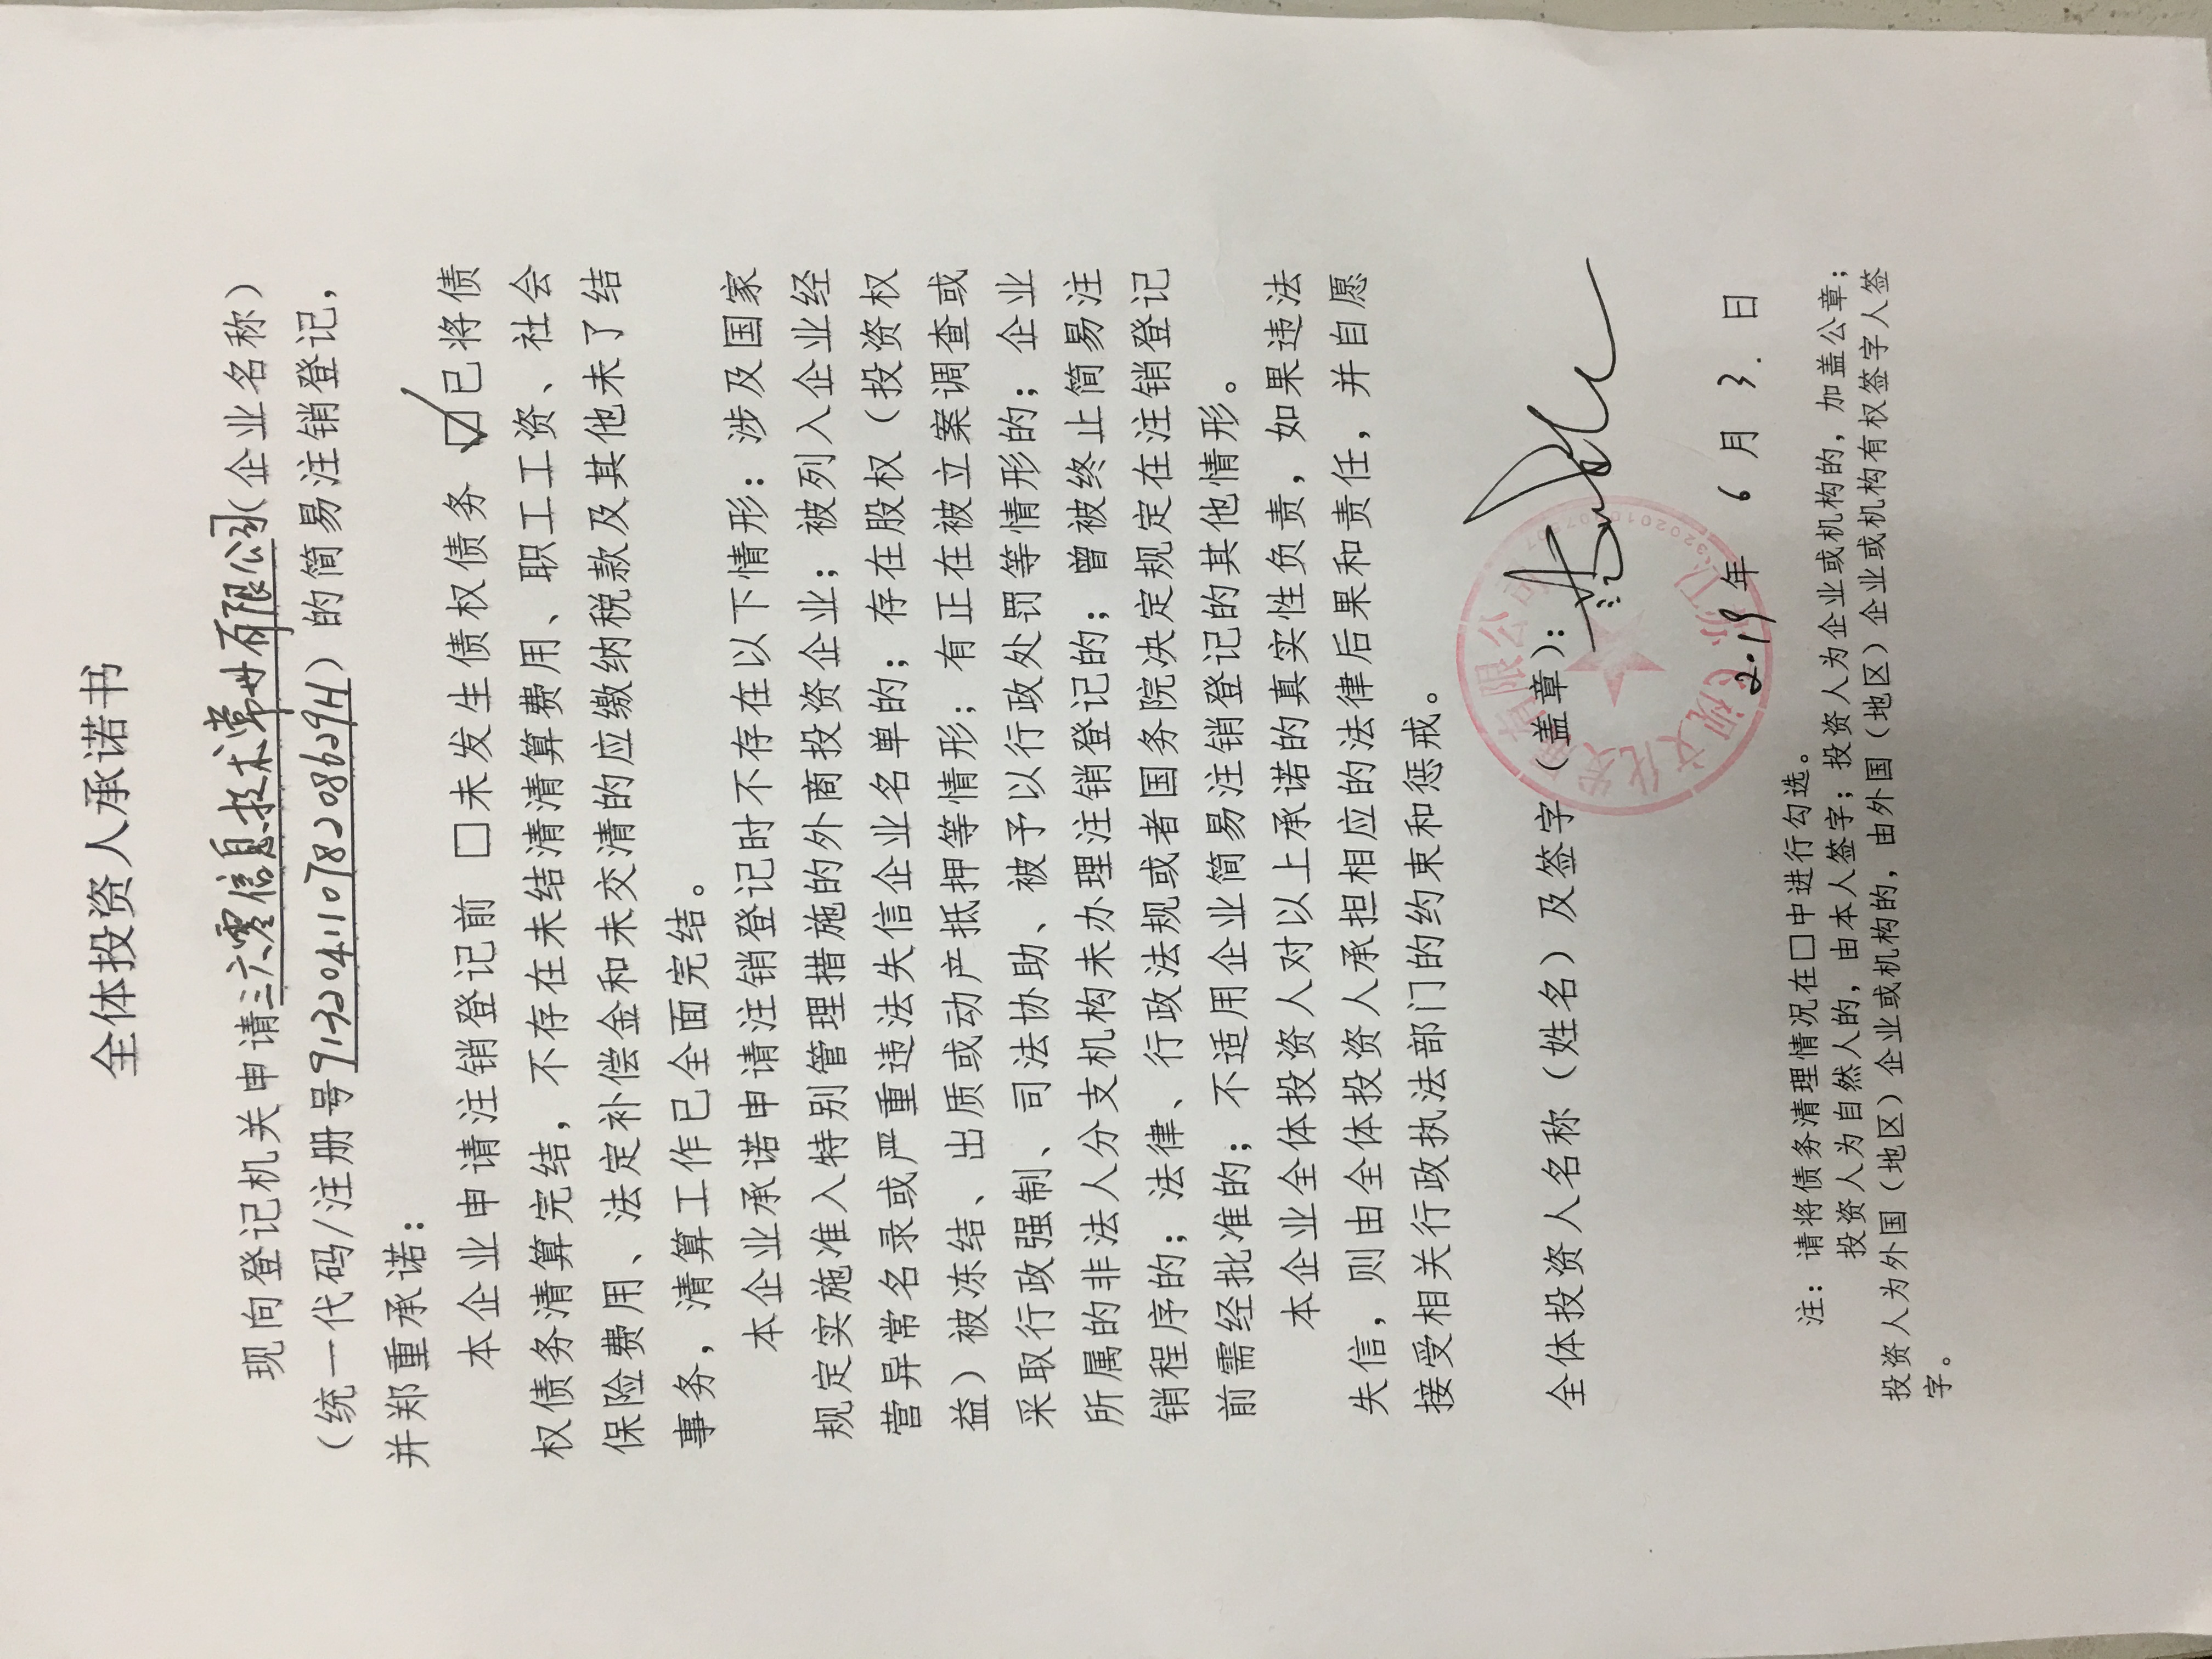 全体投资人承诺书
现向登记机关申请三六零信息技术常州有限公司(企业名称)
（统一代码/注册号91320411078208629H）的简易注销登记，
并郑重承诺：
本企业申请注销登记前 □未发生债权债务 ☑已将债
权债务清算完结，不存在未结清清算费用、职工工资、社会
保险费用、法定补偿金和未交清的应缴纳税款及其他未了结
事务，清算工作已全面完结。
本企业承诺申请注销登记时不存在以下情形：涉及国家
规定实施准入特别管理措施的外商投资企业；被列入企业经
营异常名录或严重违法失信企业名单的；存在股权（投资权
益）被冻结、出质或动产抵押等情形；有正在被立案调查或
采取行政强制、司法协助、被予以行政处罚等情形的；企业
所属的非法人分支机构未办理注销登记的；曾被终止简易注
销程序的；法律、行政法规或者国务院决定规定在注销登记
前需经批准的；不适用企业简易注销登记的其他情形。
本企业全体投资人对以上承诺的真实性负责，如果违法
失信，则由全体投资人承担相应的法律后果和责任，并自愿
接受相关行政执法部门的约束和惩戒。
全体投资人名称（姓名）及签字（盖章）：
2019年 6 月 3. 日
注：请将债务清理情况在□中进行勾选。
投资人为自然人的，由本人签字；投资人为企业或机构的，加盖公章；
投资人为外国（地区）企业或机构的，由外国（地区）企业或机构有权签字人签
字。